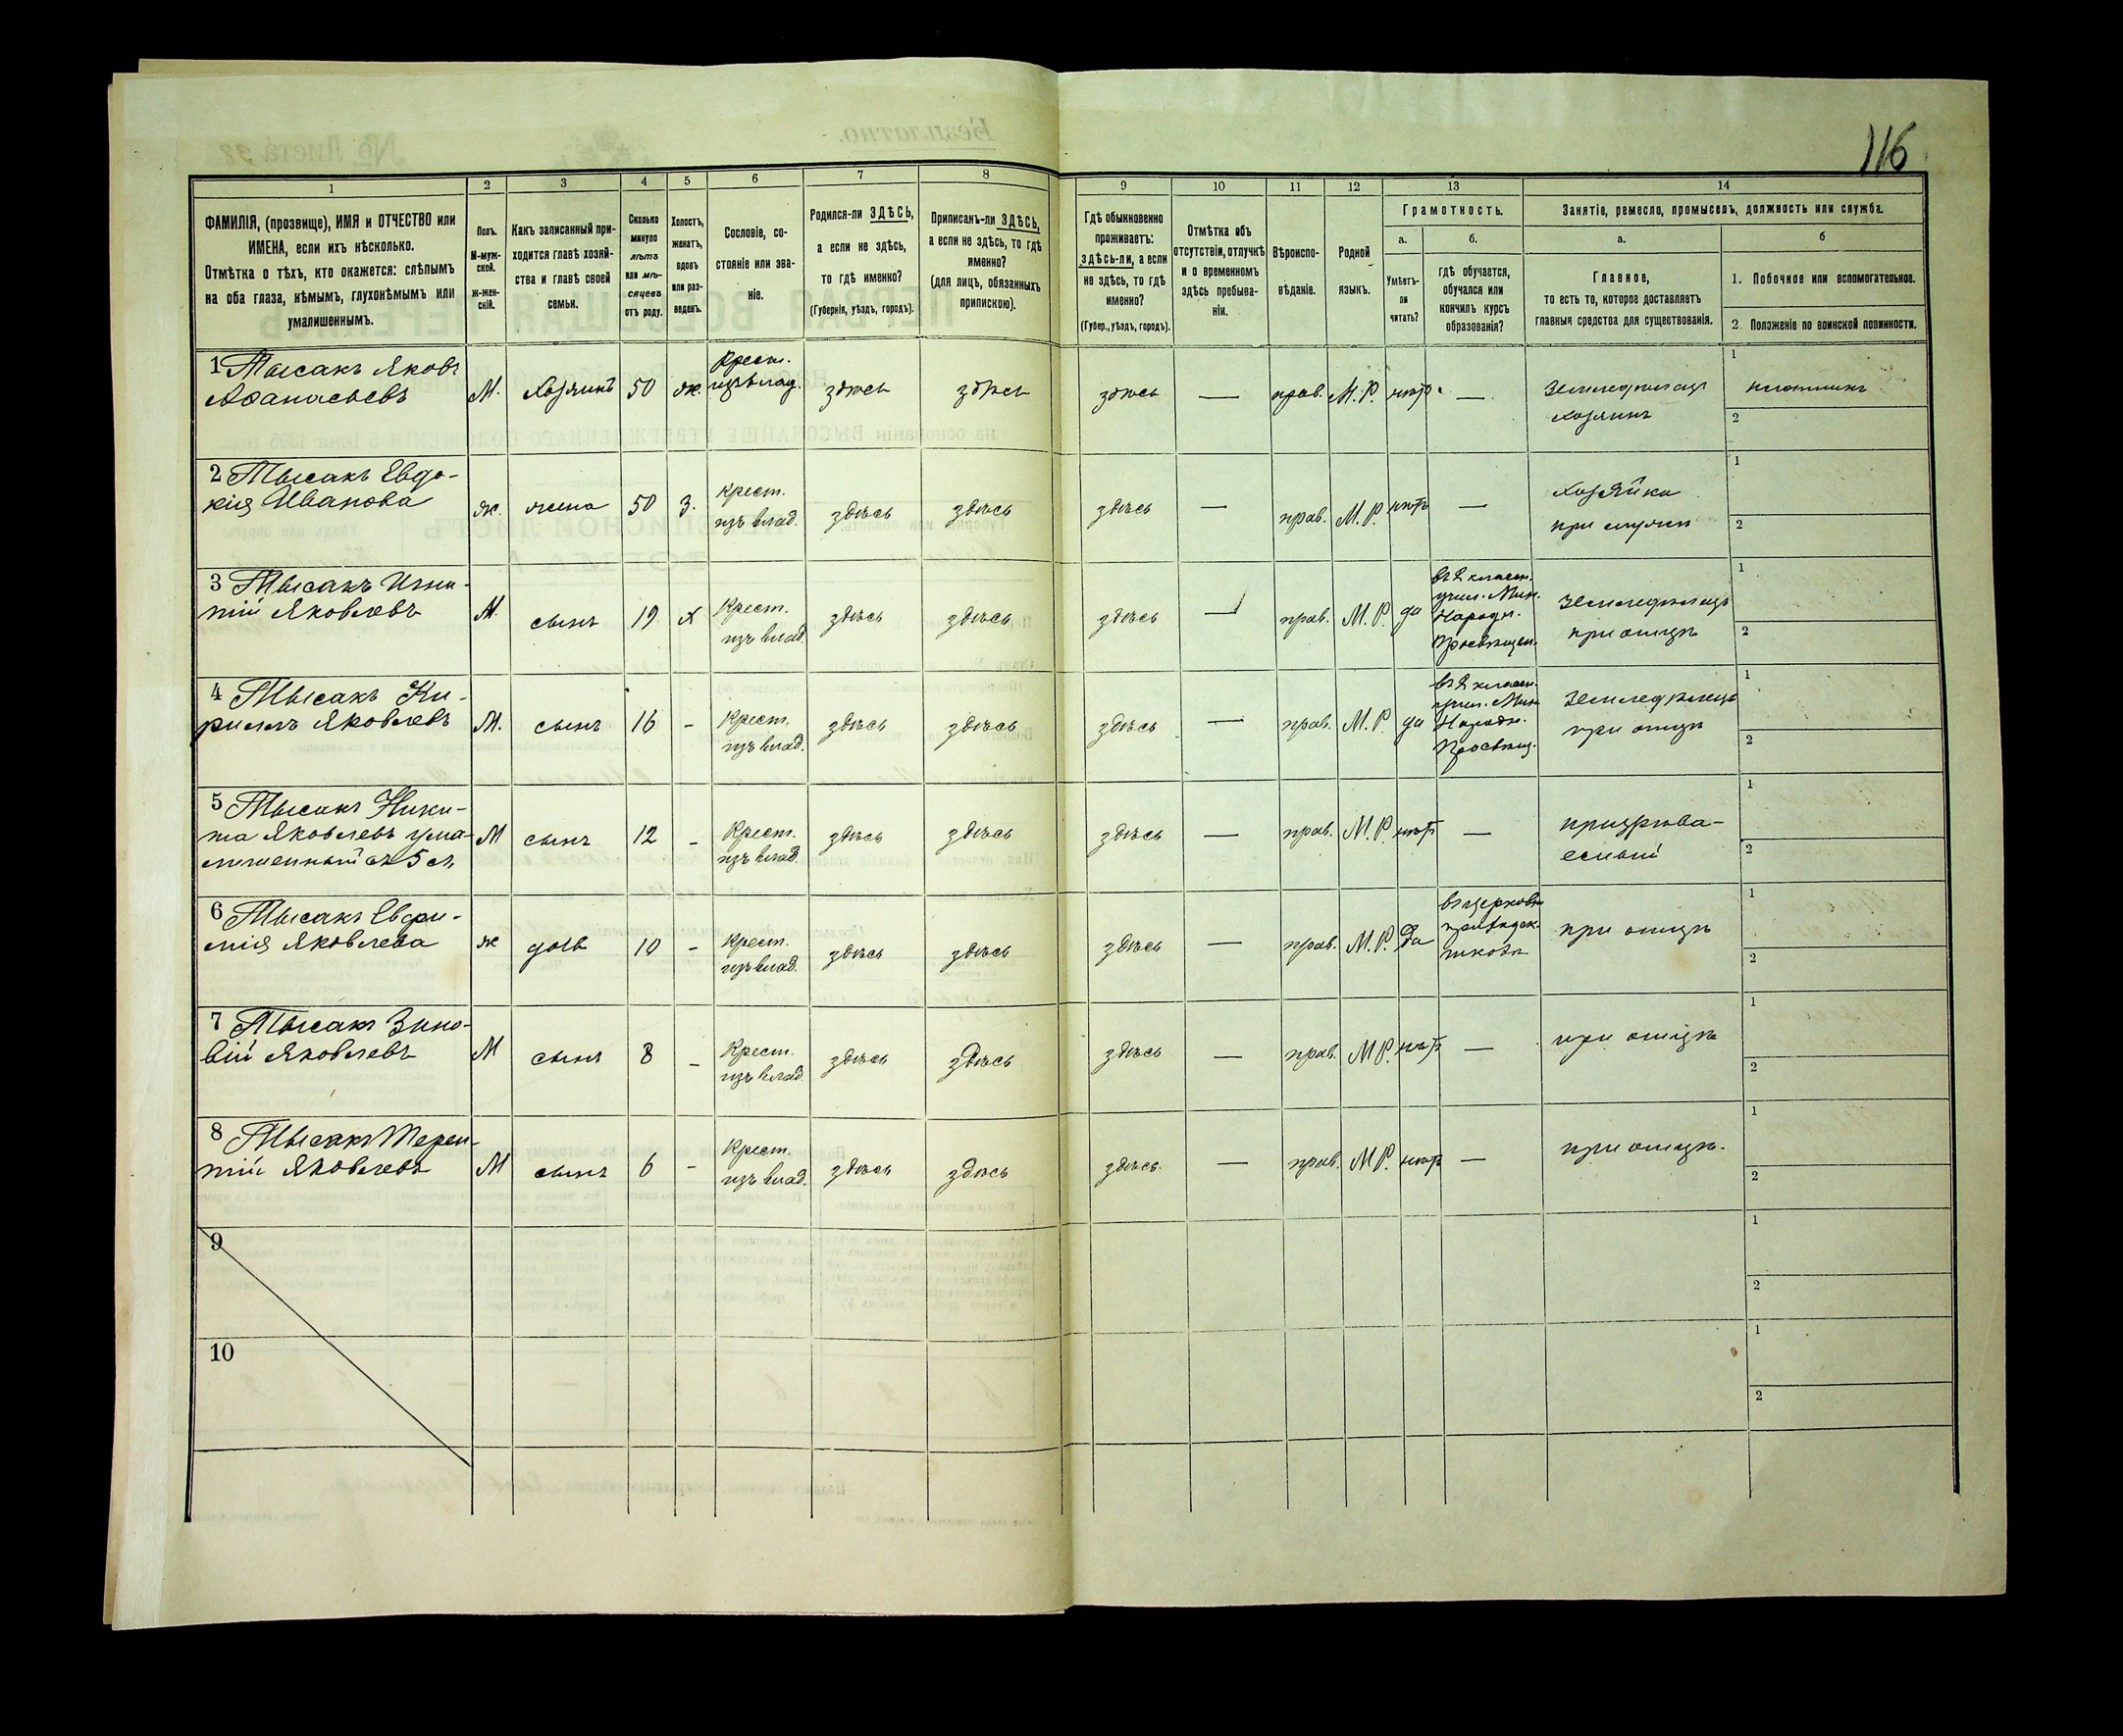 116
1 2 3 4 5 6 7 8 9 10 11 12 13 14
ФАМИЛІЯ, (прозвище), ИМЯ и ОТЧЕСТВО или
ИМЕНА, если ихъ нѣсколько.
Отмѣтка о тѣхъ, кто окажется: слѣпымъ
на оба глаза, нѣмымъ, глухонѣмымъ или
умалишеннымъ.
Полъ.
М-муж-
ской.
Ж-жен-
скій.
Какъ записанный при-
ходится главѣ хозяй-
ства и главѣ своей
семьи.
Сколько
минуло
лѣтъ
или мѣ-
сяцевъ
отъ роду.
Холостъ,
женатъ,
вдовъ
или раз-
веденъ.
Сословіе, со-
стояніе или зва-
ніе.
Родился-ли ЗДѢСЬ,
а если не здѣсь,
то гдѣ именно?
(Губернія, уѣздъ, городъ).
Приписанъ-ли ЗДѢСЬ,
а если не здѣсь, то гдѣ
именно?
(для лицъ, обязанныхъ
припискою).
Гдѣ обыкновенно
проживаетъ:
здѣсь-ли, а если
не здѣсь, то гдѣ
именно?
(Губер., уѣздъ, городъ).
Отмѣтка объ
отсутствіи, отлучкѣ
и о временномъ
здѣсь пребыва-
ніи.
Вѣроиспо-
вѣданіе.
Родной
языкъ.
Грамотность.
а.
Умѣетъ-
ли
читать?
б.
гдѣ обучается,
обучался или
кончилъ курсъ
образованія?
Занятіе, ремесло, промыселъ, должность или служба.
а.
Главное,
то есть то, которое доставляетъ
главныя средства для существованія.
б
1. Побочное или вспомогательное.
2. Положеніе по воинской повинности.
1 Тысакъ Яковъ
Аѳанасьевъ
М. Хозяинъ 50 ж.
Крест.
изъ влад.
здѣсь здѣсь здѣсь — прав. М. Р. нѣтъ —
Земледѣлецъ
хозяинъ
1 плотникъ
2
2 Тысакъ Евдо-
кія Иванова
ж. жена 50 з.
крест.
изъ влад.
здѣсь здѣсь здѣсь — прав. М. Р. нѣтъ —
Хозяйка
при мужѣ
1
2
3 Тысакъ Игна-
тій Яковлевъ
М. сынъ 19 х
Крест.
изъ влад.
здѣсь здѣсь здѣсь — прав. М. Р. да
въ 2 класн.
учил. Мин.
Народн.
Просвѣщен.
Земледѣлецъ
при отцѣ
1
2
4 Тысакъ Ки-
риллъ Яковлевъ
М. сынъ 16 -
Крест.
изъ влад.
здѣсь здѣсь здѣсь — прав. М. Р. да
въ 2 класн.
учил. Мин
Народн.
Просвѣщ.
Земледѣлецъ
при отцѣ
1
2
5 Тысакъ Ники-
та Яковлевъ ума-
лишенный съ 5 л.
М сынъ 12 -
Крест.
изъ влад.
здѣсь здѣсь здѣсь — прав. М. Р. нѣтъ —
призрѣва-
емый
1
2
6 Тысакъ Евфи-
мія Яковлева
ж дочь 10 -
Крест.
изъ влад.
здѣсь здѣсь здѣсь — прав. М. Р. Да
въ церковн
приходск.
школѣ
при отцѣ
1
2
7 Тысакъ Зино-
вій Яковлевъ
М сынъ 8 -
Крест.
изъ влад.
здѣсь здѣсь здѣсь — прав. М Р. нѣтъ —
при отцѣ
1
2
8 Тысакъ Терен-
тій Яковлевъ
М сынъ 6 -
Крест.
изъ влад.
здѣсь здѣсь здѣсь. — прав. М Р. нѣтъ —
при отцѣ.
1
2
9
1
2
10
1
2